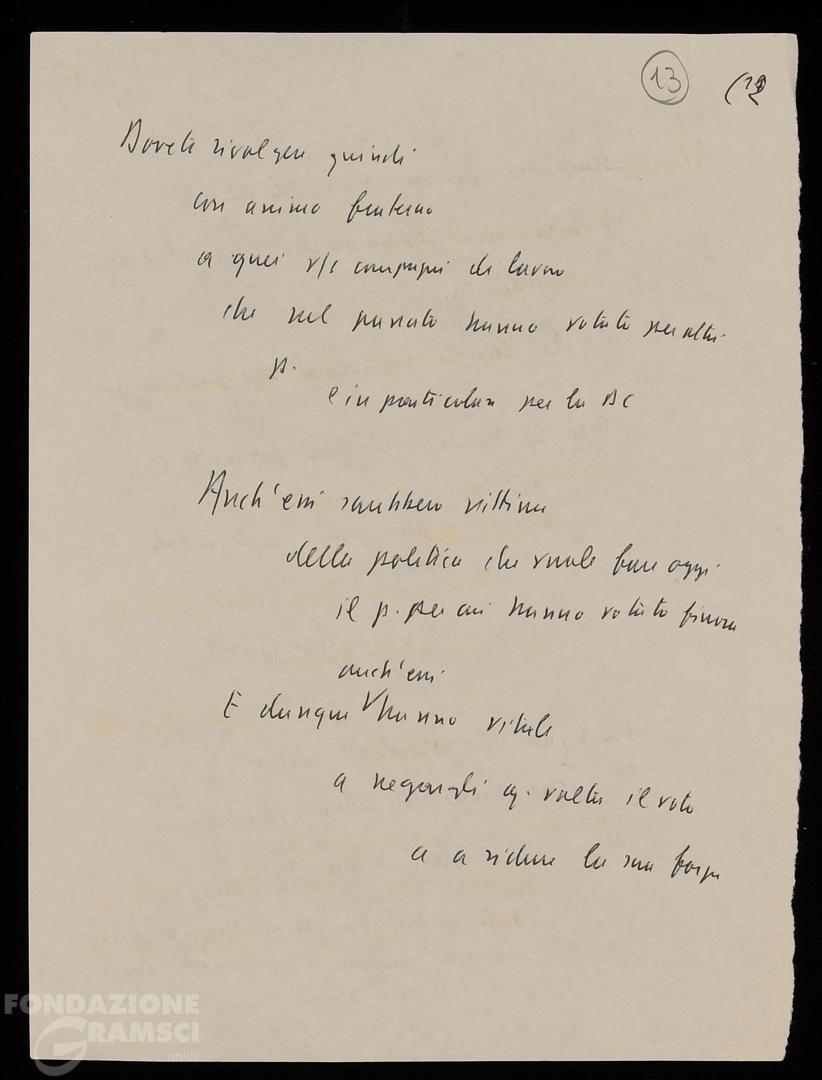 13 (12
Dovete rivolgervi quindi
con animo fraterno
a quei v/i compagni di lavoro
che nel passato hanno votato per altri
p.
e in particolare per la DC
Anch'essi sarebbero vittime
della politica che vuole fare oggi
il p. per cui hanno votato finora
anch'essi
E dunque hanno
a negargli q. volta il voto
e a ridurre la sua forza
FONDAZIONE
GRAMSCI
onlus